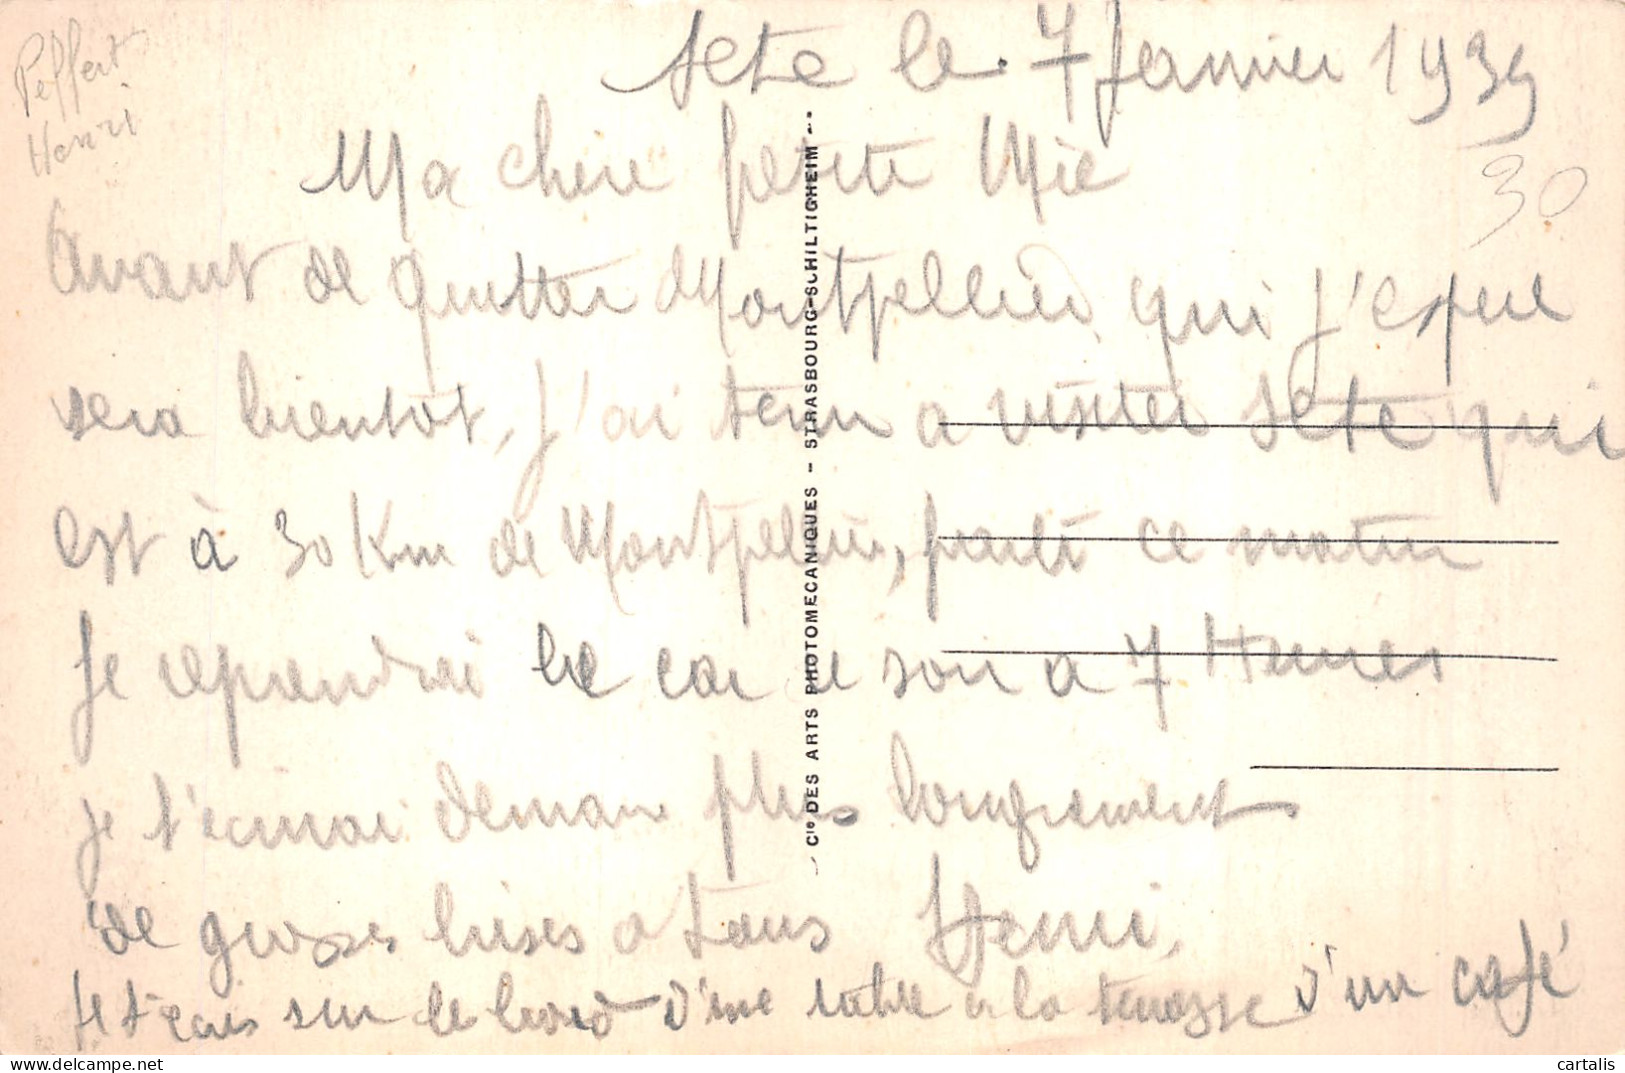 Peffert
Henri
Sete le 7 Janvier 1939
30
Ma chère petite Mie
Avant de quitter Montpellier qui j'espere
sera bientôt, j'ai tenu a visiter Sete qui
est à 30 Km de Montpellier, parti ce matin
je reprendrai le car ce soir a 7 Heures
je t'écrirai demain plus longuement
de grosses bises a tous Henri,
Je t'écris sur le bord d'une table a la terrasse d'un café
Cie DES ARTS PHOTOMECANIQUES - STRASBOURG-SCHILTIGHEIM
cartalis